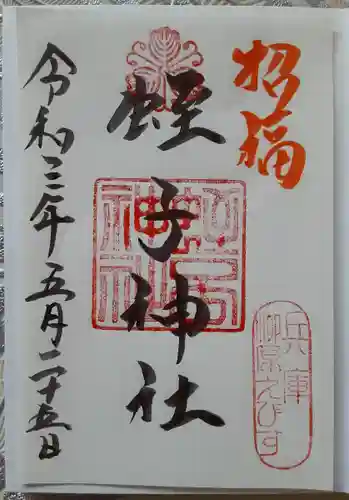 招福
兵庫
柳原えびす
蛭子神社
令和三年五月二十五日